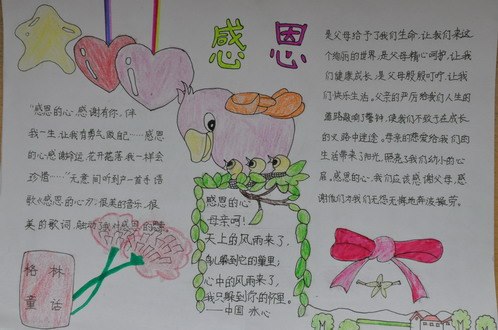 感恩
"感恩的心,感谢有你,伴
我一生,让我有勇气做自己……感恩
的心感谢命运,花开花落,我一样会
珍惜……"无意间听到户一首手语
歌《感恩的心》,很美的音乐,很
美的歌词,触动了我对感恩的
格林
童话
感恩的心
母亲呵!
天上的风雨来了,
鸟儿躲到它的巢里;
心中的风雨来了,
我只躲到你的怀里。
——中国 冰心
是父母给予了我们生命,让我们来这
个绚丽的世界,是父母精心呵护,让我
们健康成长,是父母殷殷叮咛,让我
们快乐生活。父亲的严厉给我们人生的
道路敲响了警钟,使我们不致于在成长
的叉路中迷途。母亲的慈爱给我们的
生活带来了阳光,照亮了我们幼小的心
扉。感恩的心,我们应该感谢父母,感
谢他们为我们无怨无悔地奔波操劳。